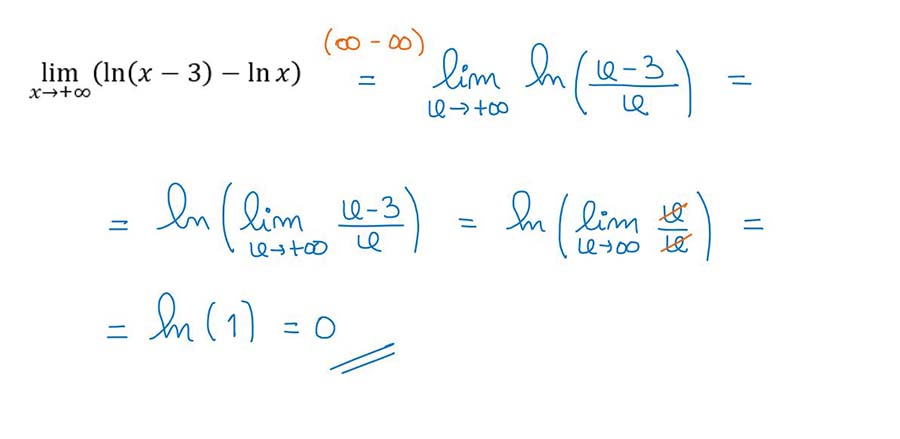 lim x→+∞ (ln(x − 3) − ln x) (∞ − ∞) = lim x→+∞ ln((x−3)/x) =
= ln(lim x→+∞ (x−3)/x) = ln(lim x→∞ x/x) =
= ln(1) = 0